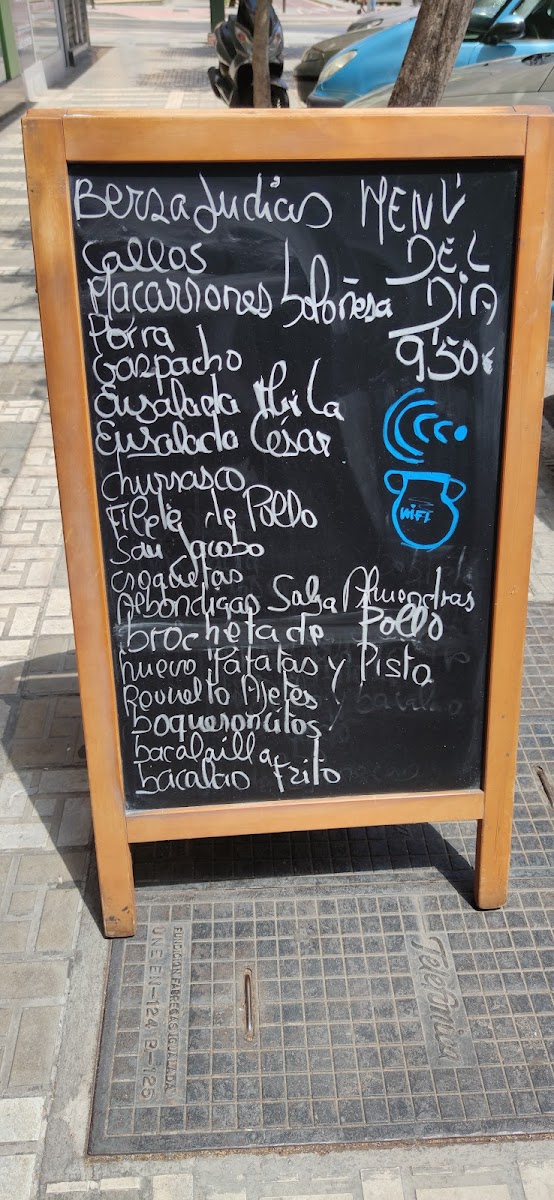 Berza Judías
MENÚ
DEL
DÍA
9'50€
Callos
Macarrones boloñesa
Porra
Gazpacho
Ensalada Mixta
Ensalada César
churrasco
Filete de Pollo
San Jacobo
croquetas
Albondigas Salsa Almendras
brocheta de Pollo
huevo Patatas y Pisto
Revuelto Ajetes
boqueroncitos
bacalailla
bacalao Frito
WiFi
Telefónica
FUNDICION FABREGAS IGUALADA
UNE EN-124 B-125